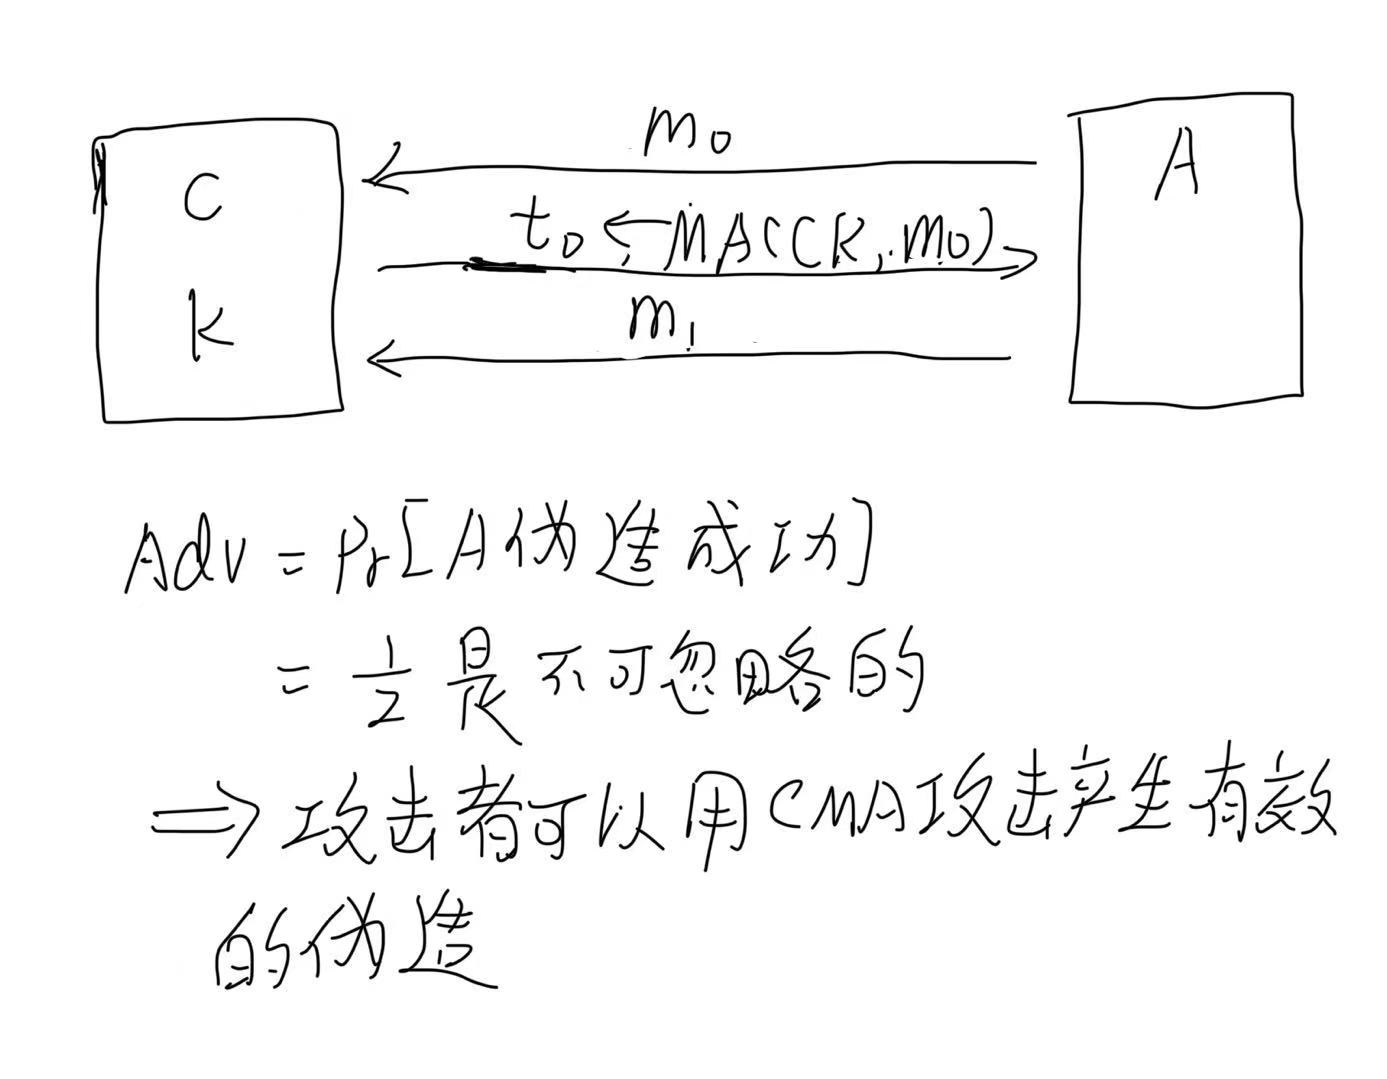 m₀
C
A
t₀ ← MAC(K, m₀)
K
m₁
Adv = Pr[A伪造成功]
= 1/2 是不可忽略的
⇒ 攻击者可以用CMA攻击产生有效
的伪造